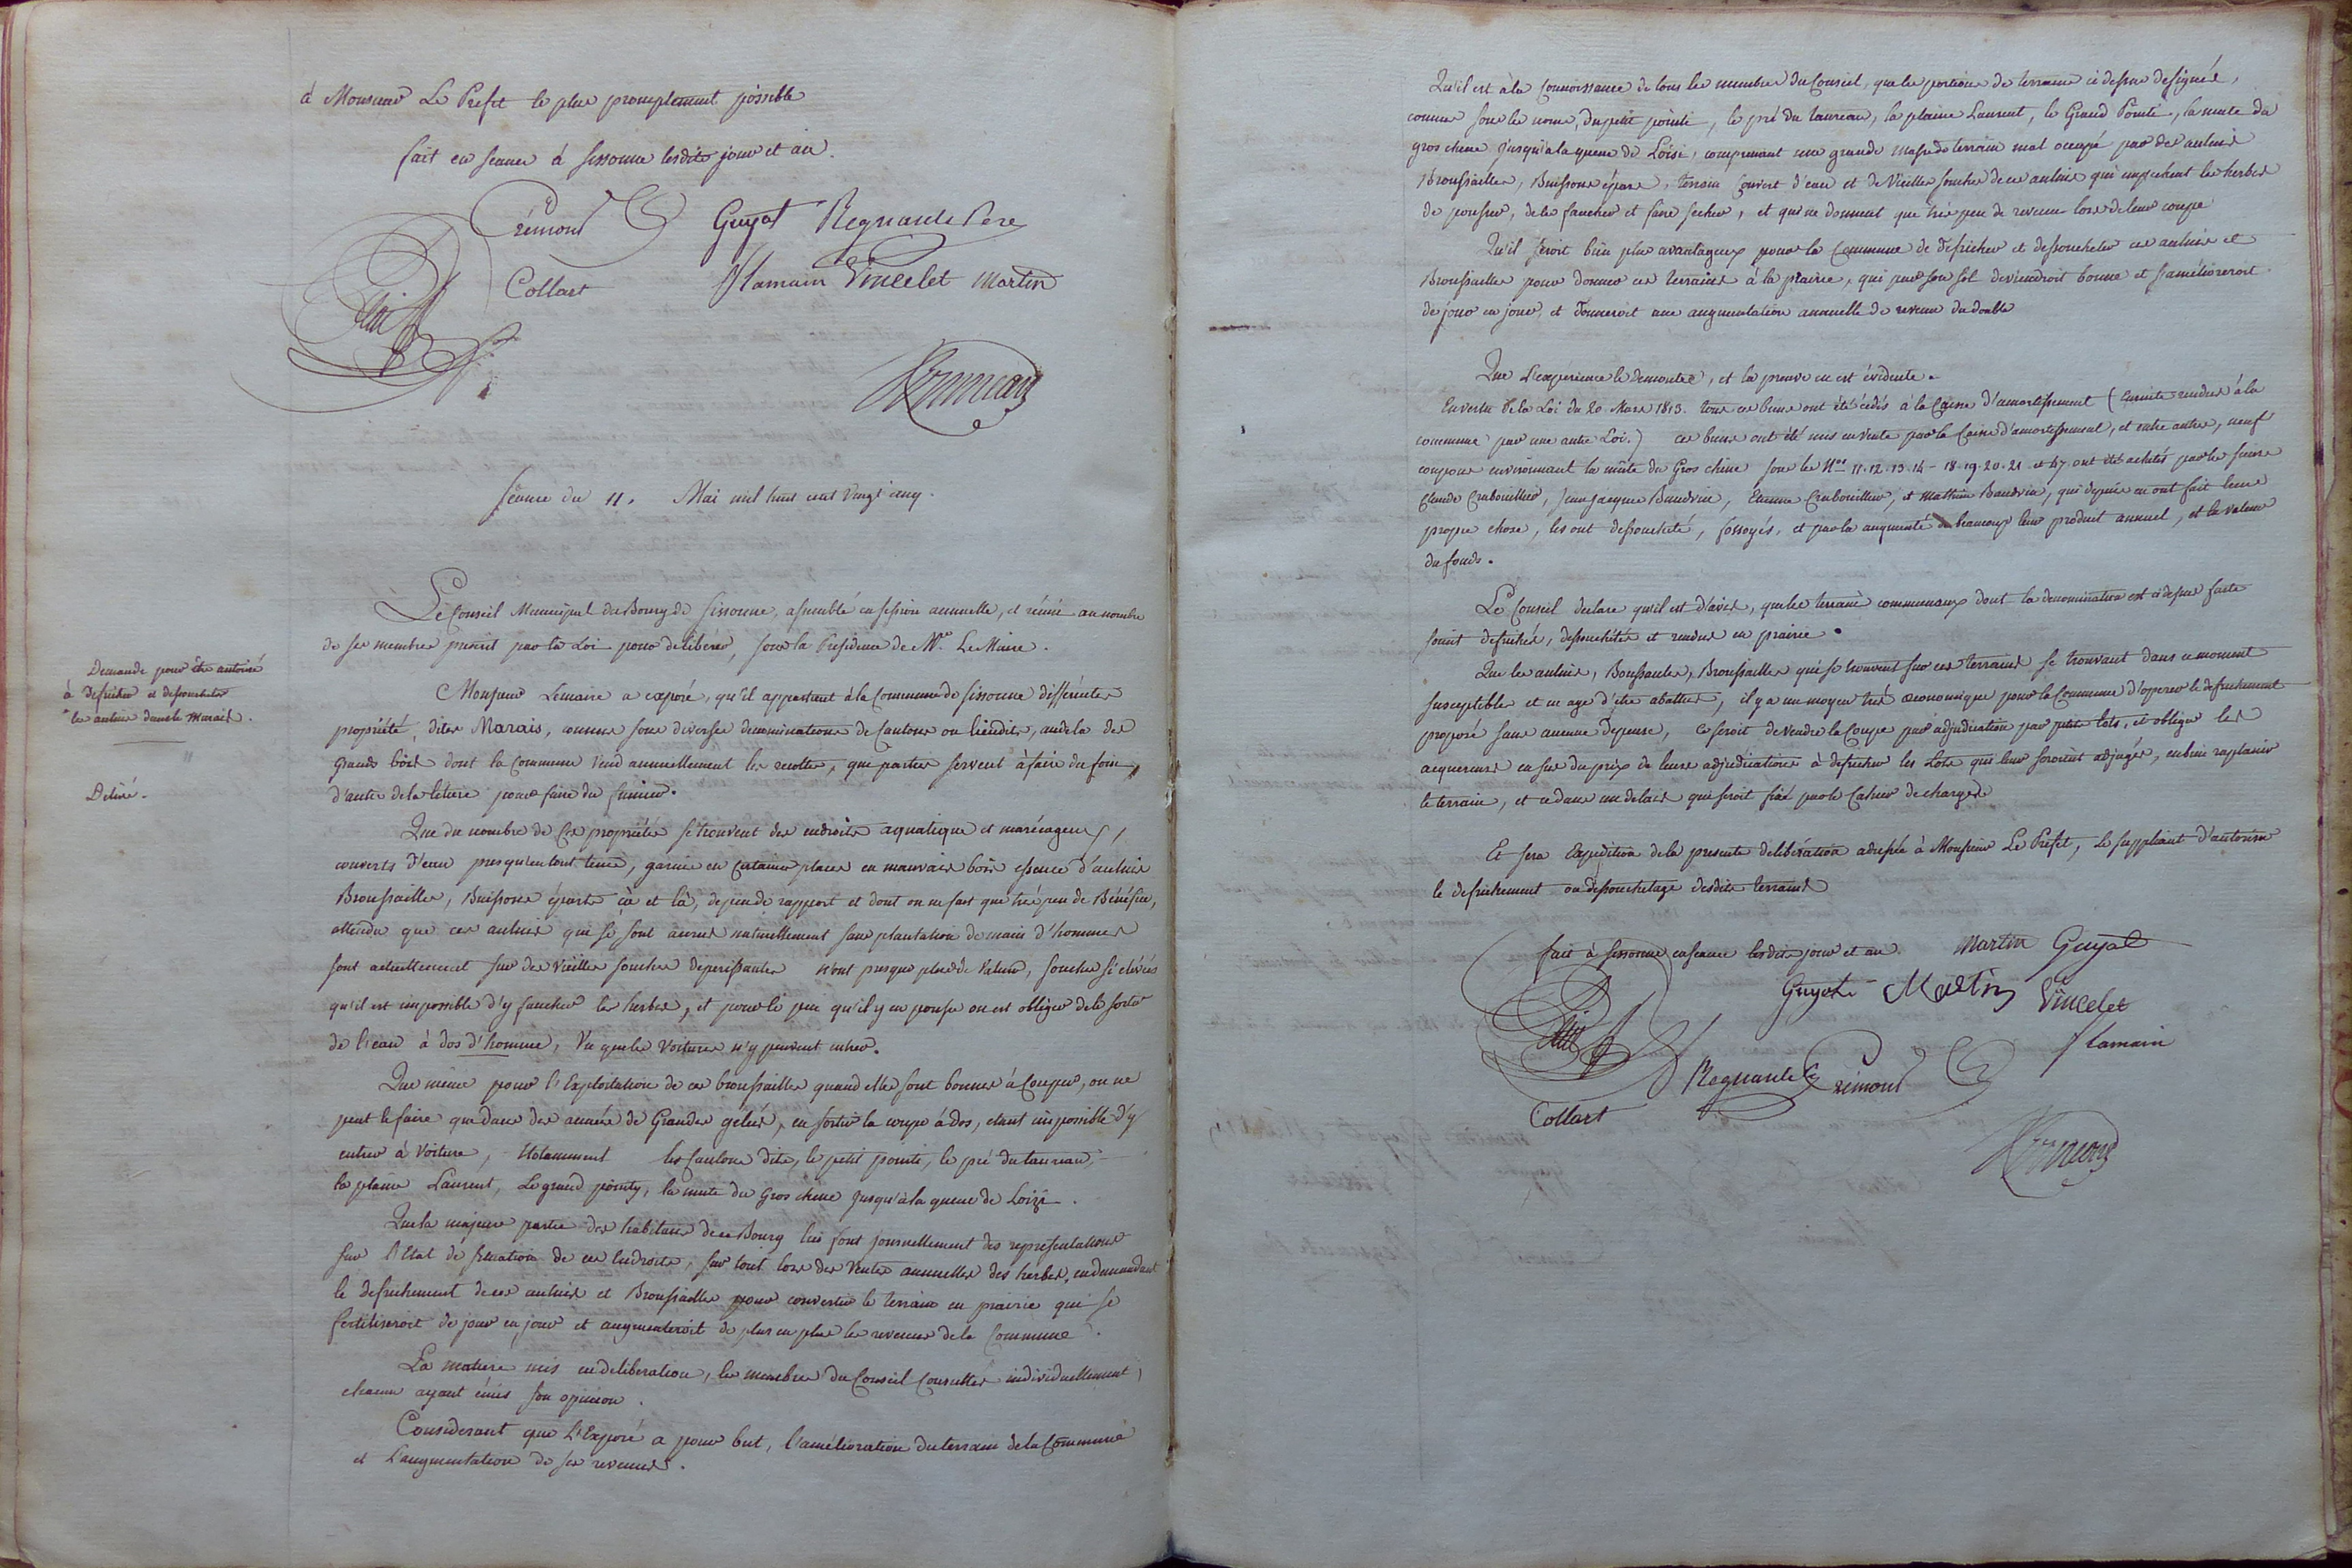 à Monsieur Le Prefet le plus promptement possible
fait en seance à Sissonne lesdits jour et an.
Crémont Guyot Regnault Pere
Collart Hamain Vincelet Martin
Petit
Séance du 11. Mai mil huit cent vingt cinq.
Le Conseil Municipal du Bourg de Sissonne, assemblé en session annuelle, et réunie au nombre
de ses membres prescrit par la Loi pour deliberer, sous la Présidence de Mr. Le Maire.
Demande pour être autorisé
à defricher et dessoucheter
les aulnes dans le Marais.
Delivré.
Monsieur Lemaire a exposé, qu'il appartient à la Commune de Sissonne différentes
propriété, dites Marais, connus sous diverses denominations de Cantons ou lieudits, audela des
grands bois dont la Commune vend annuellement les recoltes, que parties servent à faire du foin,
d'autres de la litiere pour faire du fumier.
Que du nombre de Ces propriétés se trouvent des endroits aquatique et marécageux,
couverts d'eau presqu'en tout tems, garnis en Certaines places en mauvais bois essence d'aulnes
Broussailles, Buissons éparts çà et là, de peu de rapport et dont on ne fait que trés peu de Bénéfice,
attendu que ces aulnes qui se sont accrus naturellement sans plantation de main d'hommes
sont actuellement sur des vieilles souches deperissantes n'ont presque plus de Valeur, souches si élévées
qu'il est impossible d'y faucher les herbes, et pour le peu qu'il y en pousse on est obligé de le sortir
de l'eau à dos d'homme, Vu que les Voitures n'y peuvent entrer.
Que même pour l'Exploitation de ces broussailles quand elles sont bonnes à Couper, on ne
peut le faire que dans des années de Grandes gélées, en sortir la coupe à dos, etant impossible d'y
entrer à Voiture, Notamment les Cantons dits, le petit pointi, le pré du taureau,
la plaine Laurent, Le grand pointy, la mute du Gros chêne jusqu'à la queue de Loizi.
Que la majeure partie des habitans de ce Bourg lui font journellement des représentations
sur l'Etat de situation de ces Endroits, sur tout lors des Ventes annuelles des herbes, en demandant
le defrichement de ces aulnes et Broussailles pour convertir le terrain en prairie qui se
fertiliseroit de jour en jour et augmenteroit de plus en plus les revenus de la Commune.
La matiere mis en deliberation, les membres du Conseil Consultés individuellement,
chacun ayant émis son opinion.
Considerant que L'Exposé a pour but, l'amélioration du terrain de la Commune
et L'augmentation de ses revenus.
Qu'il est à la Connoissance de tous les membres du Conseil, que les portions de terrains ci dessus designés,
connus sous les noms, du petit pointi, le pré du taureau, la plaine Laurent, le Grand Pointi, la mute du
gros chene jusqu'a la queue de Loisi, comprenant une grande masse de terrain mal occupé par des aulnes
Broussailles, Buissons épars, terrain Couvert d'eau et de Vieilles souches de ces aulnes qui empechent les herbes
de pousser, de les faucher et faire secher, et qui ne donnent que très peu de revenu lors de leur coupe
Qu'il seroit bien plus avantageux pour la Commune de defricher et dessoucheter ces aulnes et
Broussailles pour donner ces terrains à la prairie, qui par son sol deviendroit bonne et s'amélioreroit
de jour en jour, et donneroit une augmentation annuelle de revenu du double
Que L'expérience le demontre, et la preuve en est évidente.
En vertu de la Loi du 20 Mars 1813. tous ces biens ont été cédés à la Caisse d'amortissement (Ensuite rendus à la
commune par une autre Loi.) ces biens ont été mis en Vente par la Caisse d'amortissement, et entre autres, neuf
coupons environnant la mute du Gros chêne sous les Nos 11. 12. 13. 14 - 18. 19. 20. 21 et 47. ont été achetés par les sieurs
Claude Crubouillier, Jean Jacques Baudrin, Etienne Crubouillier, et Mathieu Baudrin, qui depuis en ont fait leur
propre chose, les ont dessoucheté, fossoyés, et par la augmenté de beaucoup leur produit annuel, et la valeur
du fonds.
Le Conseil declare qu'il est d'avis, que les terrains communaux dont la denomination est ci dessus faite
soient defrichés, dessouchetés et rendus en prairie.
Que les aulnes, Broussailles qui se trouvent sur ces terrains se trouvant dans ce moment
susceptibles et en age d'être abattus, il y a un moyen trés oeconomique pour la Commune d'operer le defrichement
proposé sans aucune depense, ce seroit de vendre la Coupe par adjudication par petits lots, et obliger les
acquereurs en sus du prix de leurs adjudications à defricher les Lots qui leur seroient adjugés, en bien rapplanir
le terrain, et ce dans un delais qui seroit fixé par le Cahier de charges
Et sera Expedition de la presente deliberation adressée à Monsieur Le Prefet, le suppliant d'autoriser
le defrichement ou dessouchetage desdits terrains
fait à Sissonne en seance lesdits jour et an. Martin Guyot
Guyot Martin Vincelet
Petit Hamain
Regnault Crémont
Collart